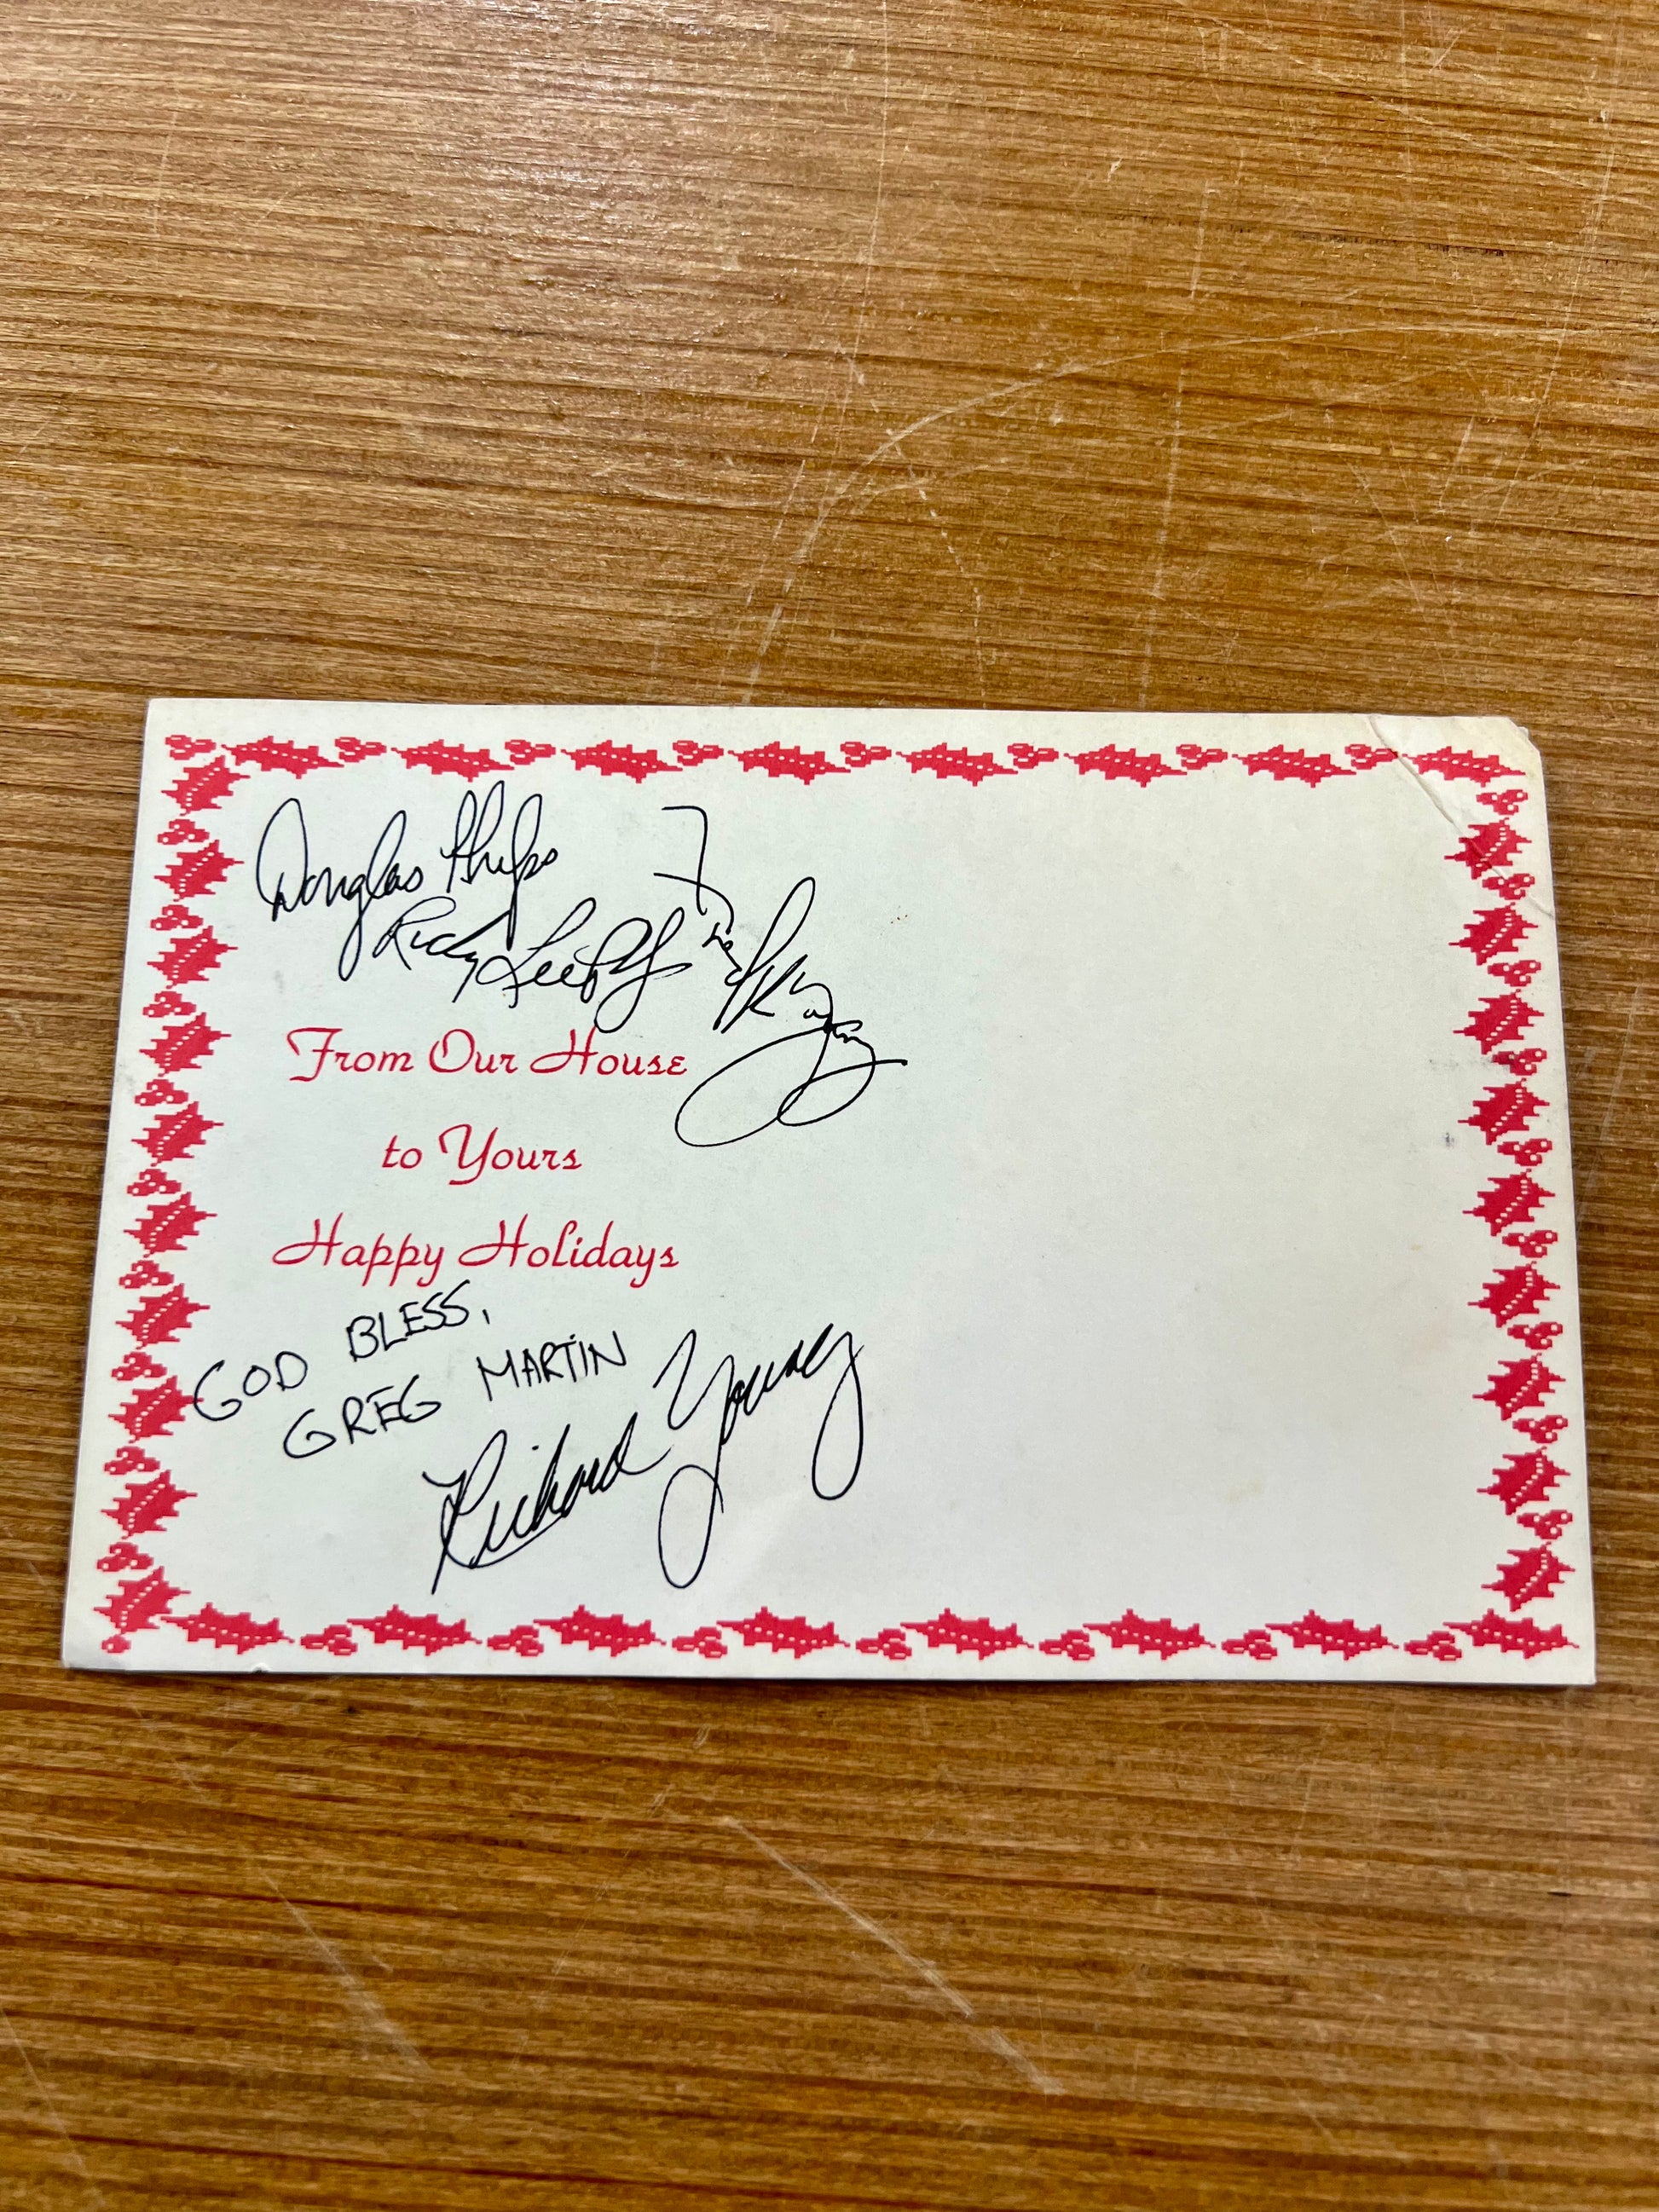 Douglas Phelps
Ricky Lee Phelps
Fred Young
From Our House
to Yours
Happy Holidays
GOD BLESS,
GREG MARTIN
Richard Young